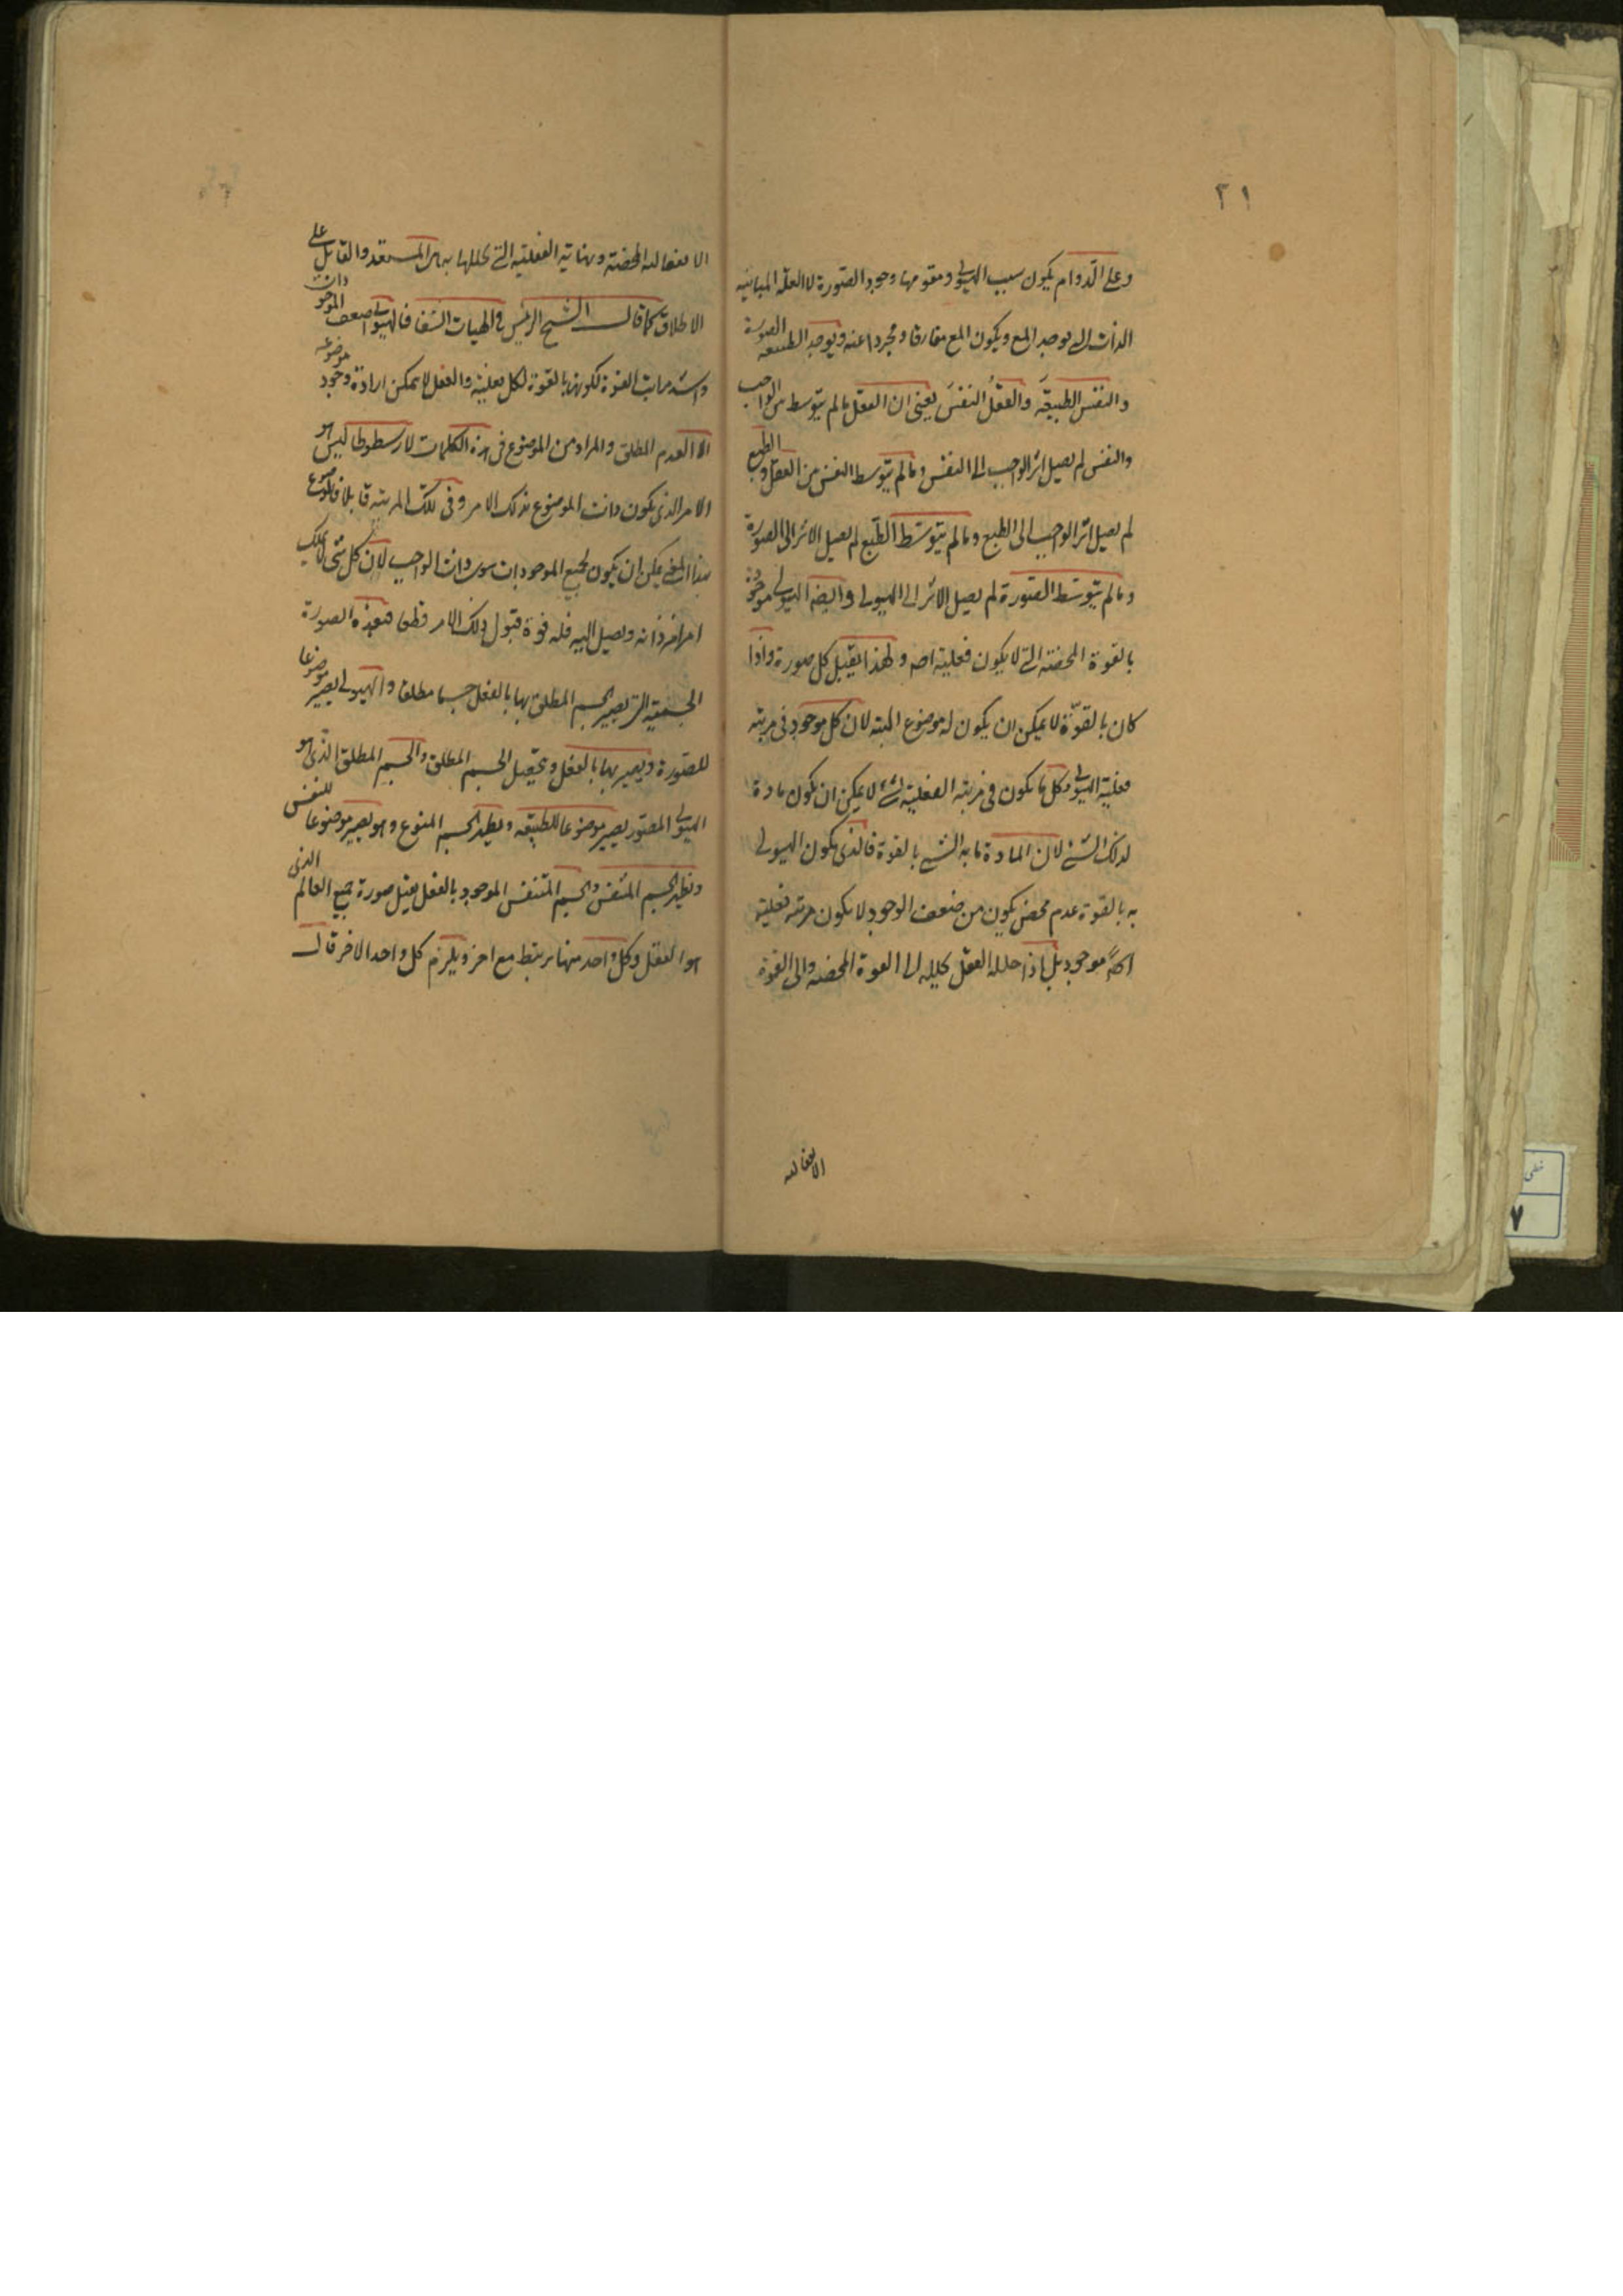 ٣١
وعلى الدوام يكون سبب الهيولى ومقومها وجود الصورة لا العلة المباينة
الذات التى يوجد المع ويكون المع مفارقا ومجردا عنه ويوجد الطبيعه الصورة
والنفس الطبيعَة والعقلُ النفسَ يعنى ان العقل مالم يتوسط من الواجب
والنفس لم يصل اثر الواجب الى النفس ومالم يتوسط النفس من العقل و الطبع
لم يصل اثر الواجب الى الطبع ومالم يتوسط الطبع لم يصل الاثر الى الصورة
ومالم يتوسط الصورة لم يصل الاثر الى الهيولى وايضا الهيولى موجودة
بالقوة المحضة التى لا يكون فعلية اصلا ولهذا يقبل كل صورة واذا
كان بالقوة لا يمكن ان يكون له موضوع البته لان كل موجود فى مرتبه
فعلية الهيولى وكل ما يكون فى مرتبه الفعلية لشئ لا يمكن ان يكون مادة
لذلك الشئ لان المادة ما به الشئ بالقوة فالذى يكون الهيولى
به بالقوة عدم محض يكون من ضعف الوجود لا يكون مرتبه فعلية
موجود بل اذا حلله العقل يحلله الى القوة المحضه والى القوة
الانفعاليه
الانفعاليه المحضة وبهاتيه الفعلية التى يحللها المستعد والقابل على
الاطلاق كما قال الشيخ الرئيس فى الهيات الشفا فالهيولى اضعف الموجودات
واشد مراتب القوة لكونها بالقوة لكل فعلية والعقل لا يمكن ارادة وجود موضوعه
الا العدم المطلق والمراد من الموضوع فى هذه الكلمات لارسطوطاليس هو
الامر الذى يكون ذات الموضوع بذلك الامر وفى تلك المرتبه قابلا فالموضوع
بهذا المعنى يمكن ان يكون لجميع الموجودات سوى ذات الواجب لان كل شئ لا يملك
امرا فى ذاته ويصل اليه فله قوة قبول ذلك الامر قطعا فبهذه الصورة
الجسمية التى يصير الجسم المطلق بها بالفعل جسما مطلقا والهيولى يصير موضوعا
للصورة ويصير بها بالفعل ويحصل الجسم المطلق والجسم المطلق الذى هو
الهيولى المصور يصير موضوعا للطبيعه ويظهر الجسم المنوع وهو يصير موضوعا للنفس
ويظهر الجسم المتنفس والجسم المتنفس الموجود بالفعل يقبل صورة جميع العالم الذى
هو العقل وكل واحد منها مرتبط مع اخر ويلزم كل واحد الاخر قال